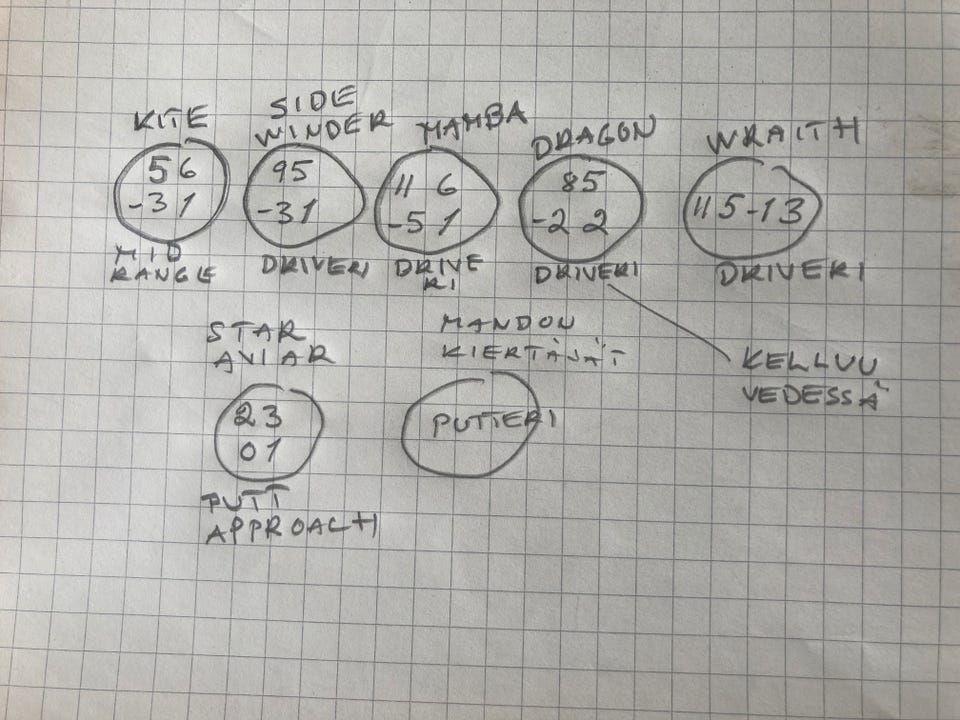 KITE
56
-31
MID
RANGE
SIDE
WINDER
95
-31
DRIVERI
MAMBA
11 6
-51
DRIVE
RI
DRAGON
85
-22
DRIVERI
WRAITH
115-13
DRIVERI
KELLUU
VEDESSÄ
STAR
AVIAR
23
01
PUTT
APPROACH
KIERTÄJÄT
PUTTERI